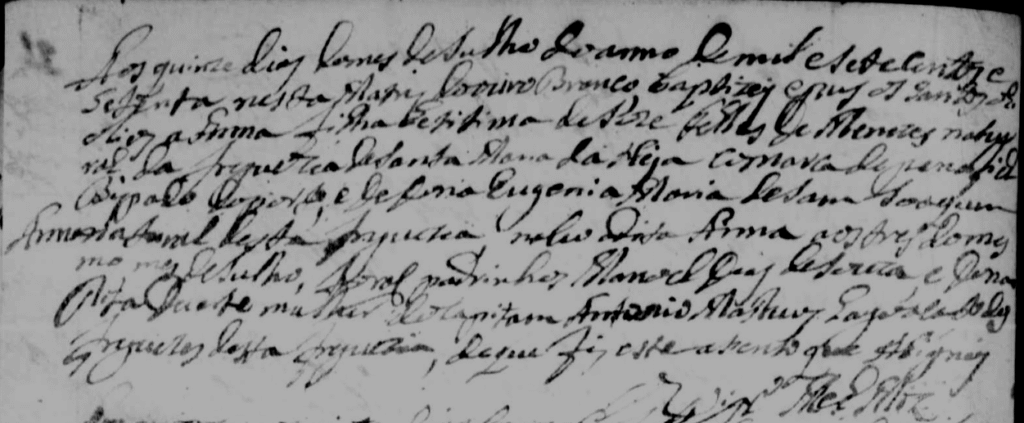 Aos quinze dias do mes de Julho do anno de mil e sete centos e
setenta nesta Matriz do ouro Branco baptizey e pus os santos
olios a Anna filha legitima de Jose Telles de Menezes natu
ral da freguezia de Santa Maria da Comarca de penafiel
Bispado do porto, e de Dona Eugenia Maria de Sam Joaquim
Anna natural desta freguezia, naceo dita Anna aos tres do mes
mo mes de Julho, foraõ padrinhos Manoel Dias de Souza, e Dona
Rita Duarte mulher do Capitam Antonio Martins todos
freguezes desta freguezia, de que fiz este asento que asignei